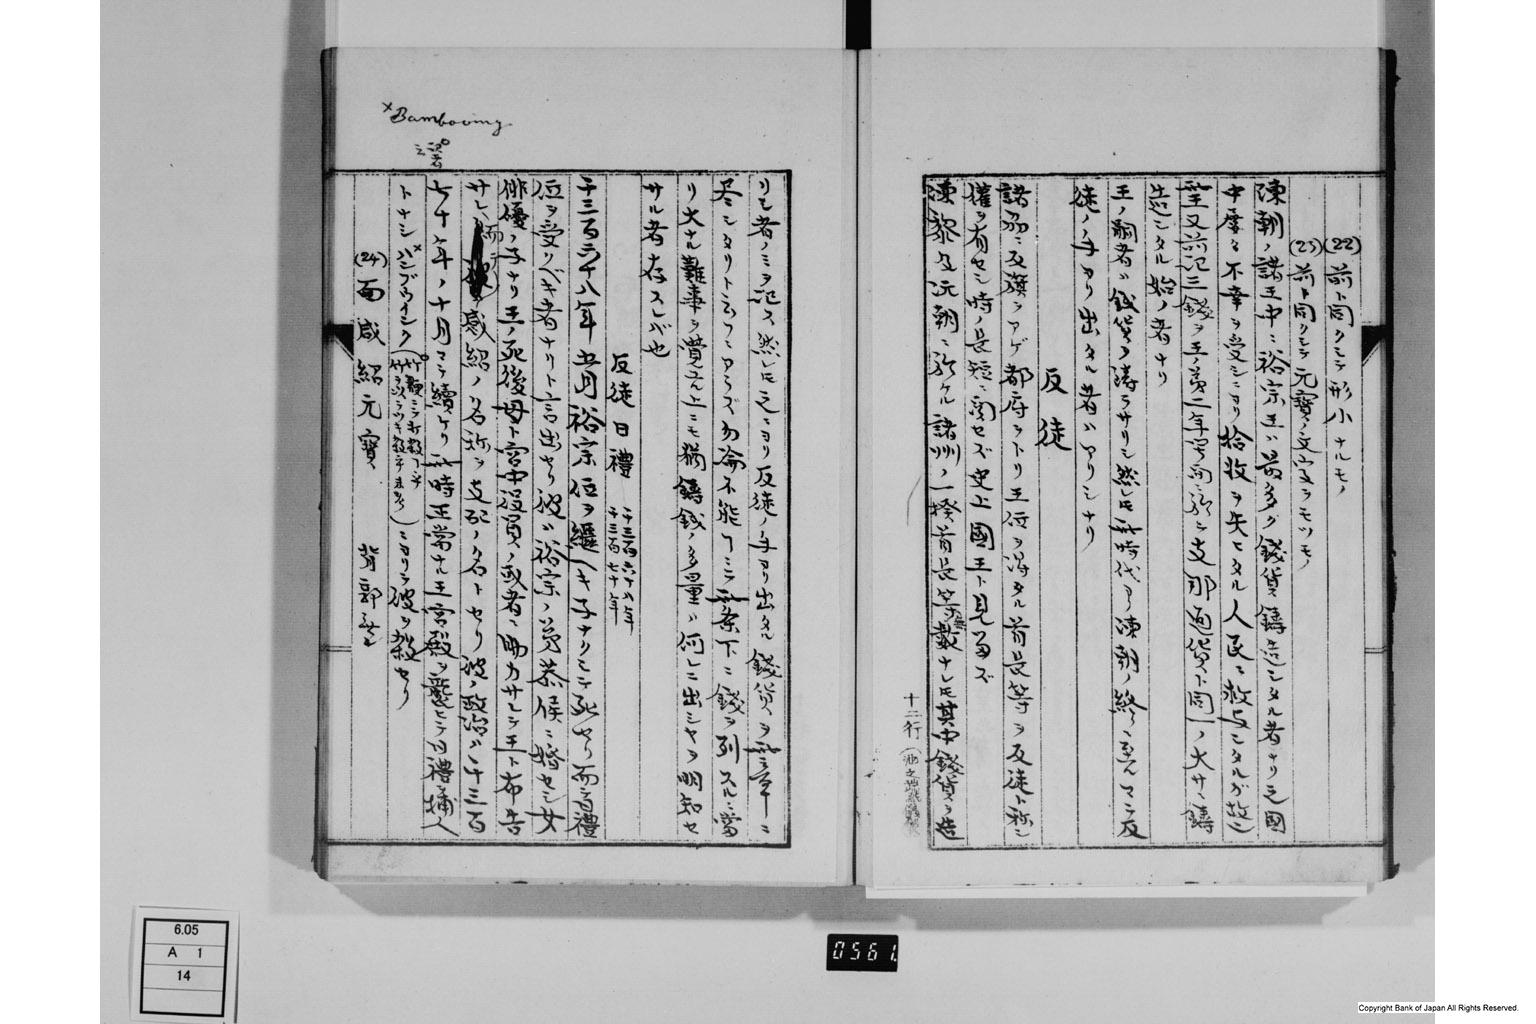 (22) 前ト同クシテ形小ナルモノ
(23) 前ト同クシテ元寳ノ文字ヲモツモノ
陳朝ノ諸王中ニ裕宗王ハ最多ク錢貨ヲ鑄造シタル者ナリ之國
中屢々不幸ヲ受シニヨリ拾收ヲ失ヒタル人民ニ救与シタルガ故ニ
王又前記三錢ヲ王ノ第二年号間ニ於テ支那通貨ト同一ノ大サニ鑄
造シタル始ノ者ナリ
王ノ嗣者ハ錢貨ヲ鑄ラサリシ然レ𪜈此時代ヨリ陳朝ノ終ニ至ルマテ反
徒ノ手ヨリ出タル者ハアリシナリ
反徒
諸州ニ反旗ヲアゲ都府ヲトリ王位ヲ得タル首長等ヲ反徒ト称シ
權ヲ有セシ時ノ長短ニ関セズ史上國王ト見留ズ
陳黎及阮朝ニ於ケル諸州ノ一揆首長等ハ無數ナレ𪜈其中錢貨ヲ造
十二行
リシ者ノミヲ記ス然レ𪜈之ニヨリ反徒ノ手ヨリ出タル錢貨ヲ此章ニ
尽シタリト云フニアラズ勿論不能ヿニシテ此条下ニ錢ヲ列スルニ當
リ大ナル難事ヲ費ヱル上ニモ猶鑄銭ノ多量ハ何レニ出シヤヲ明知セ
サル者存スレバ也
反徒日禮 千三百六十八年
千三百七十年
千三百六十八年五月裕宗位ヲ繼ベキ子ナクシテ死セリ而テ日禮
位ヲ受クベキ者ナリト言出セリ彼ハ裕宗ノ兄恭侯ニ婚セシ女
俳優ノ子ナリ王ノ死後母ト宮中役員ノ敢者ニ助力サレテ王ト布告
サレ而テ咸紹ノ名称ヲ支配ノ名トセリ彼ノ政治ハ千三百
七十年ノ十月マテ續ケリ此時王常ナル王宮殿ヲ襲ヒテ日禮ヲ捕人
トナシバンブウインク(竹類ニテ打殺ヿニテ
)ニヨリテ彼ヲ殺セリ
(24) 面 咸紹元寳 背 郭
×Bambooing
訳者
云
6.05
A 1
14
0561.
Copyright Bank of Japan All Rights Reserved.